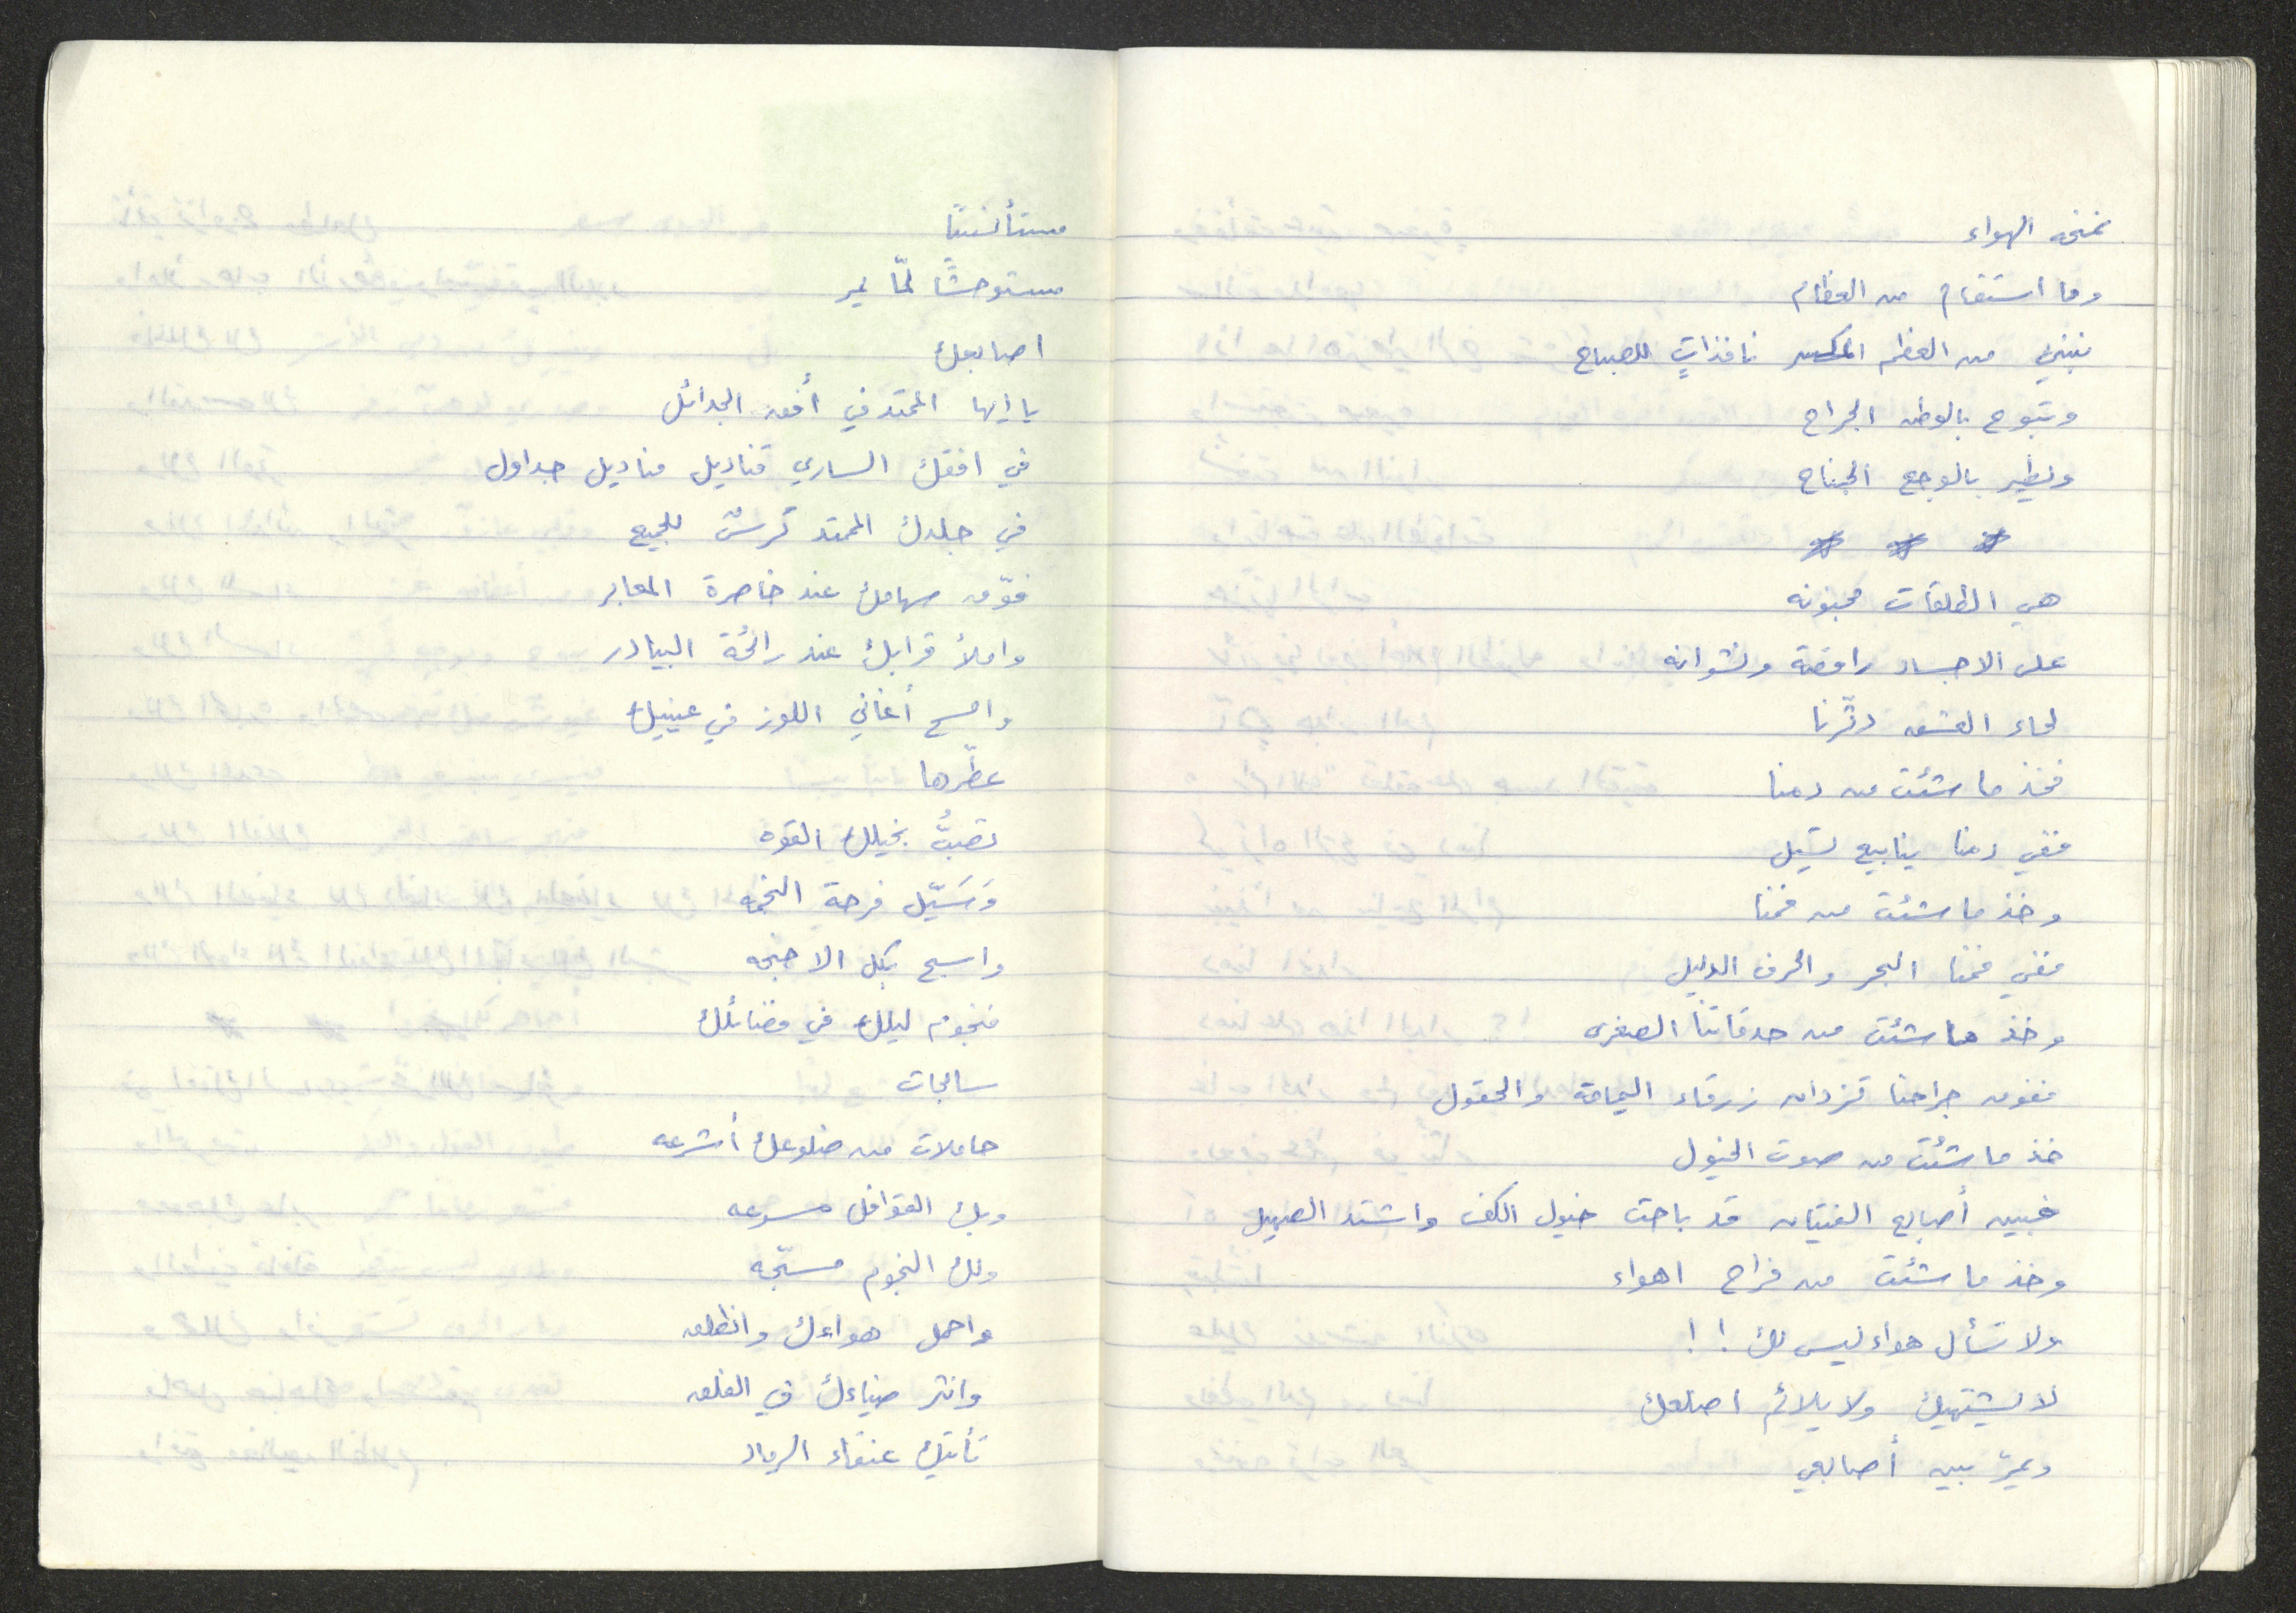 نمنحه الهواء
وما استقام من العظام
نبني من العظم المكسر نافذاتٍ للصباح
وتبوح بالوطن الجراح
ونطير بالوجع الجناح
* * *
هي الطلقات مجنونه
على الاجساد راقصة ونشوانه
لحاء العشق دثّرنا
فخذ ما شئت من دمنا
ففي دمنا ينابيع تسيل
وخذ ما شئت من فمنا
ففي فمنا البحر والحرف الدليل
وخذ ما شئت من حدقاتنا الصغرى
ففوق جراحنا تزدان زرقاء اليمامة والحقول
خذ ما شئت من صوت الخيول
فبين أصابع الفتيان قد باحت خيول الكف واشتد الصهيل
وخذ ما شئت من فراح اهواء
ولا تسأل هواء ليس لك !!
لا يشتهيك ولا يلائم اضلعك
ويمرّ بين أصابعي
مستأنسًا
مستوحشًا لمّا يمر
اصابعك
يا ايها الممتد في أفق الجدائل
في افقك الساري قناديل مناديل جداول
في جلدك الممتد عُرسٌ للجميع
فوّق سهامك عند خاصرة المعابر
واملأ قرابك عند رائحة البيادر
وامسح أغاني اللوز في عينيك
عطّرها
تصبُّ بخيلك القوه
وَسَيّل فرحة النجمه
واسبح بكل الاجنحه
فنجوم ليلك في فضائلك
سابحات
حاملات من ضلوعك أشرعه
وبك القوافل مسرعه
ولك النجوم مسبّحه
واحمل هواءك وانطلق
وانثر ضياءك في الفلق
تأتيك عنقاء الرماد